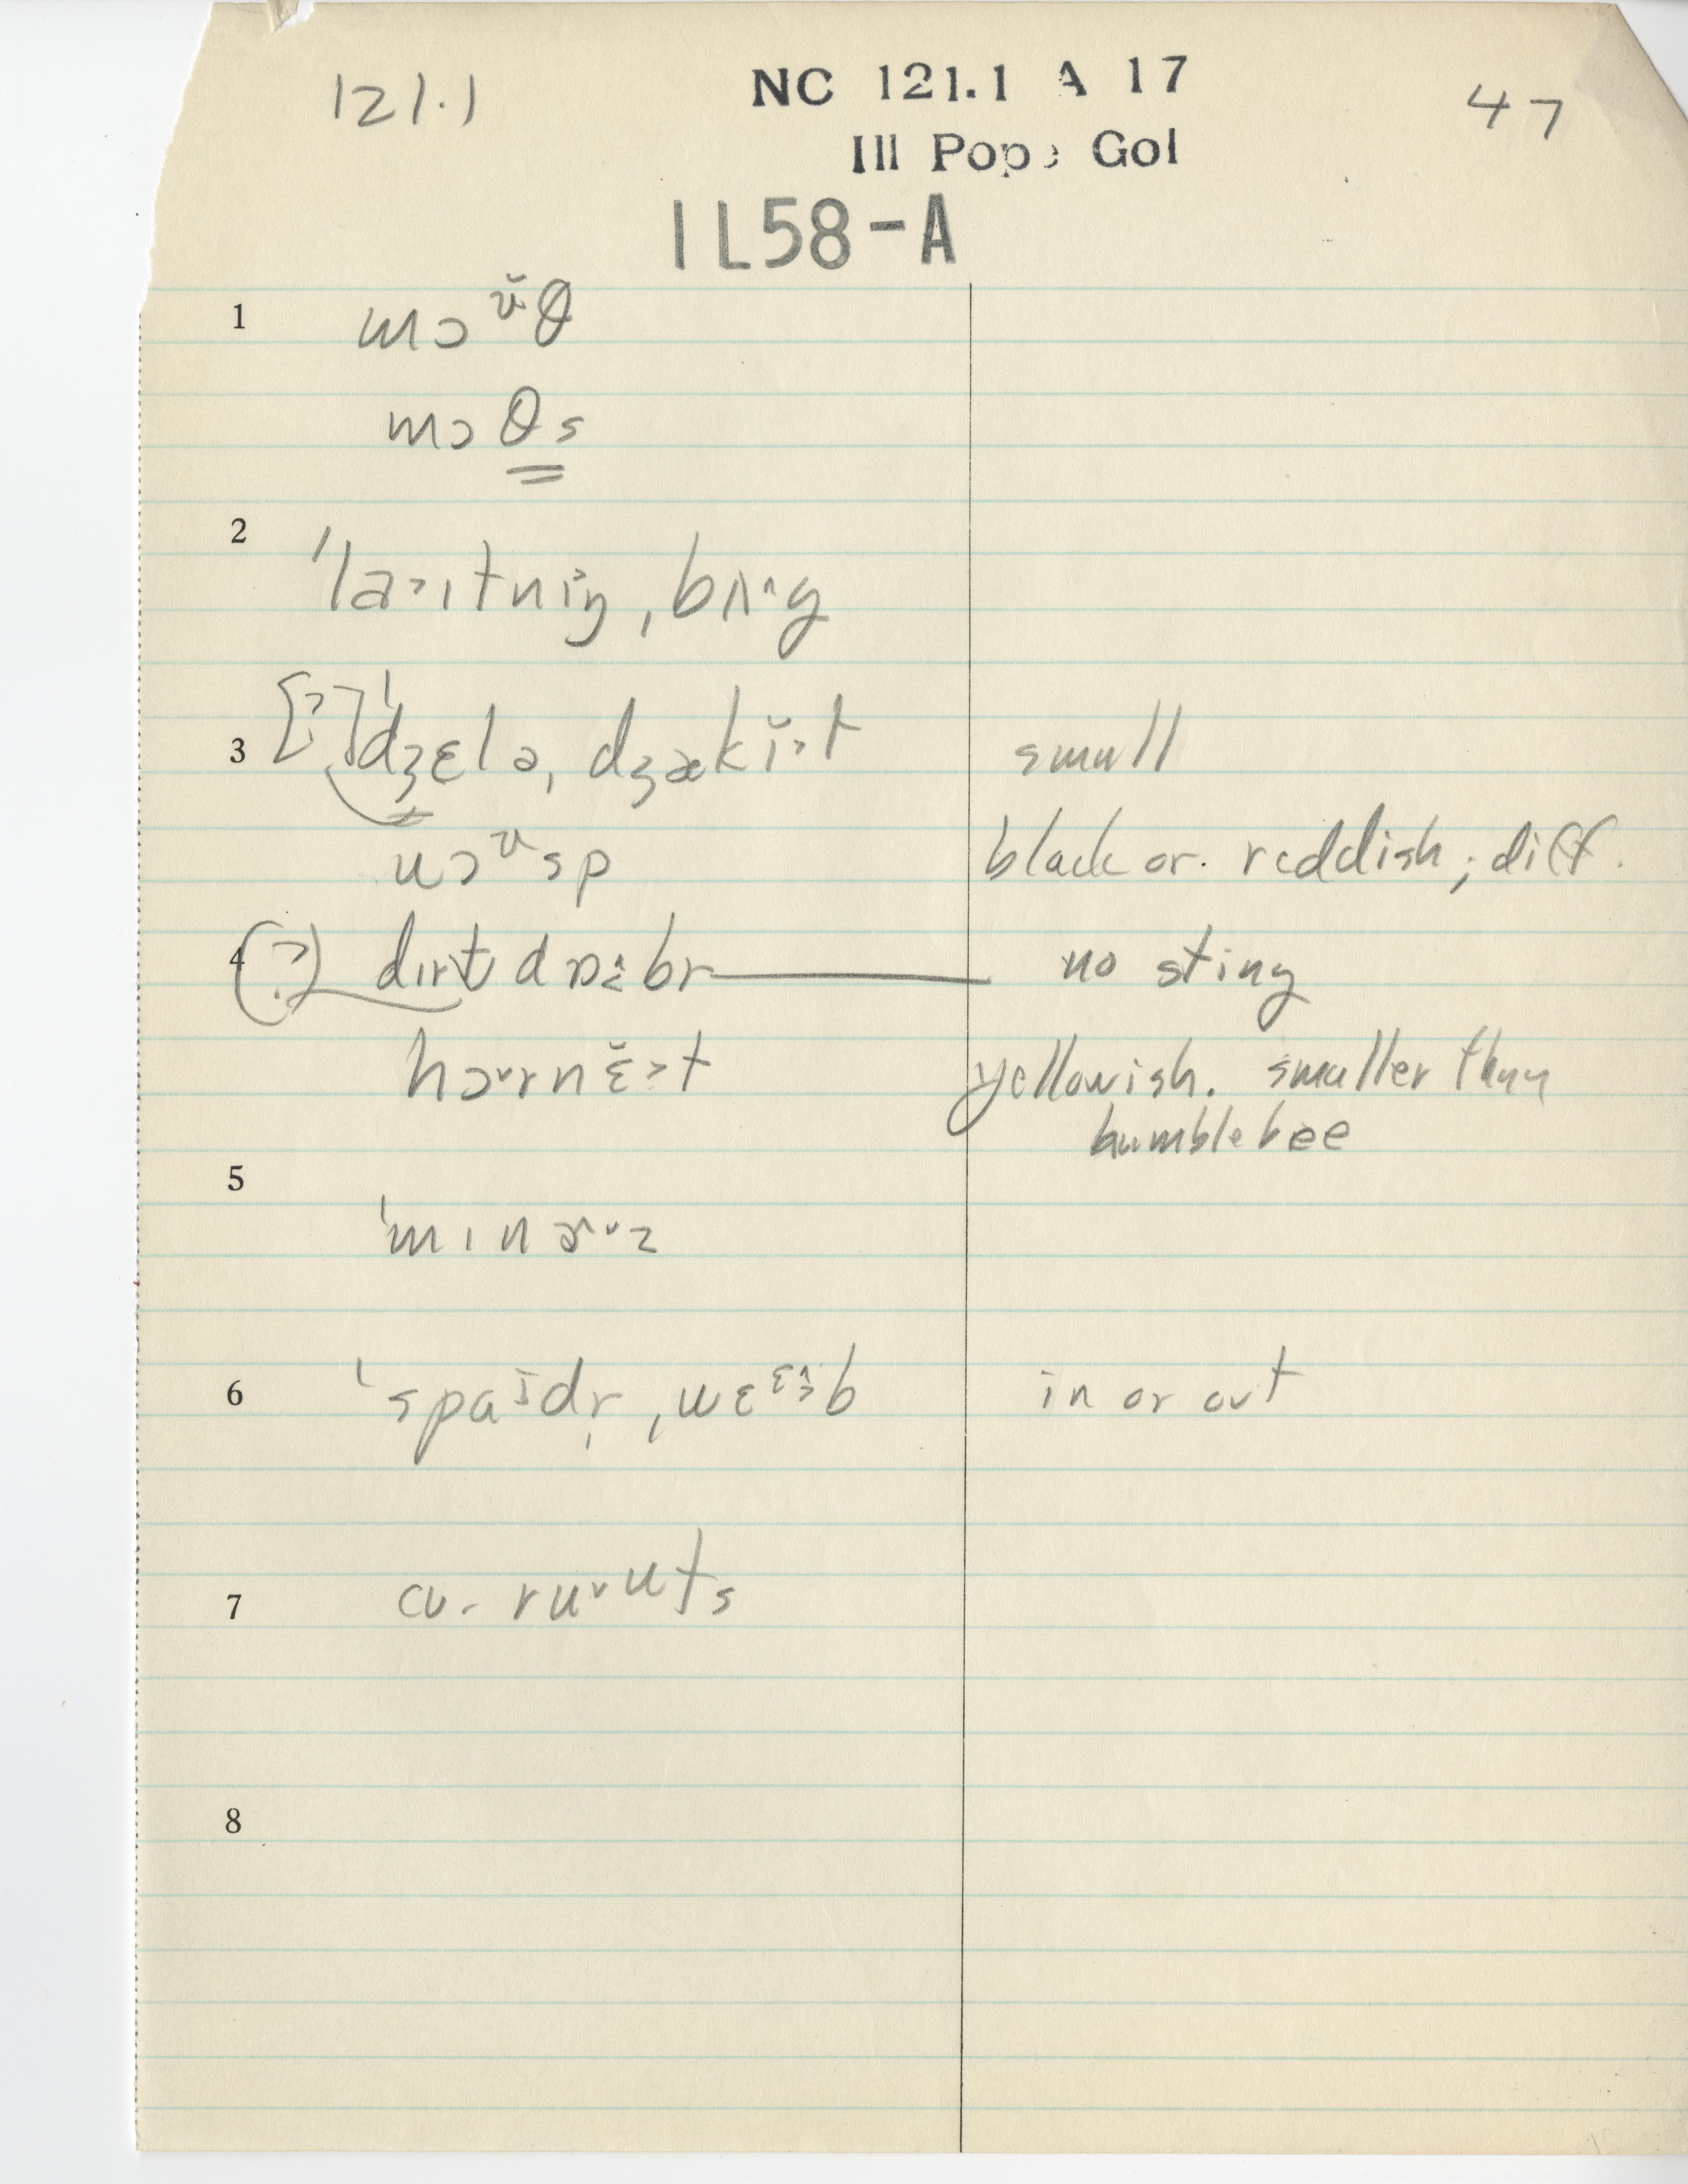 121.1 NC 121.1 A 17 47
Ill Pope Gol
IL58-A
1 mɔᶷ̆θ
mɔθs
2 ˈlaɪtnɪŋ, bʌ^g
3 [?] ˈdʒɛlə, dʒækĭ˃t small
wɔᶷsp black or reddish; diff.
4 (?) dɪrt dɒbr no sting
hɔ˅rnɛ̆˃t yellowish. smaller than
bumblebee
5 ˈmɪn
6 ˈspaɪdr, wɛᵋb in or out
7 ru˅ᵘts
8